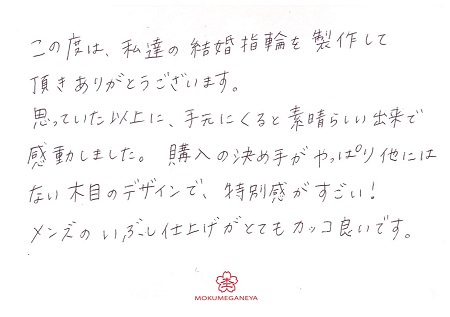 この度は、私達の結婚指輪を製作して
頂きありがとうございます。
思っていた以上に、手元にくると素晴らしい出来で
感動しました。購入の決め手がやっぱり他には
ない木目のデザインで、特別感がすごい！
メンズのいぶし仕上げがとてもカッコ良いです。
MOKUMEGANEYA